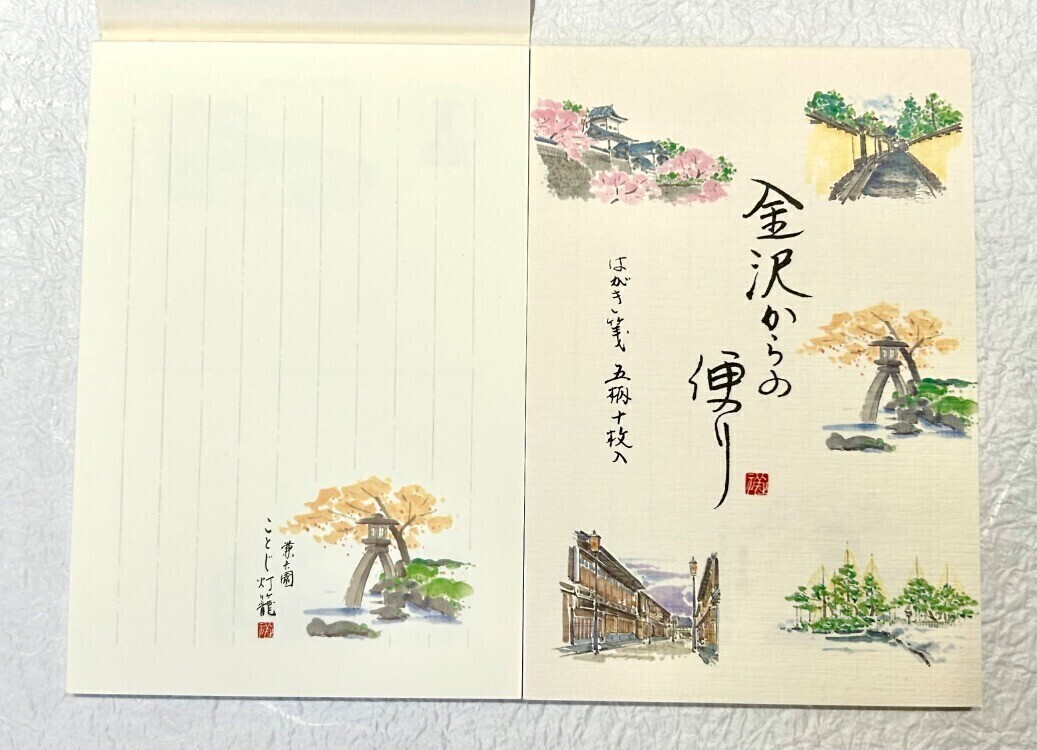 金沢からの
便り
はがき箋 五柄十枚入
兼六園
ことじ灯籠